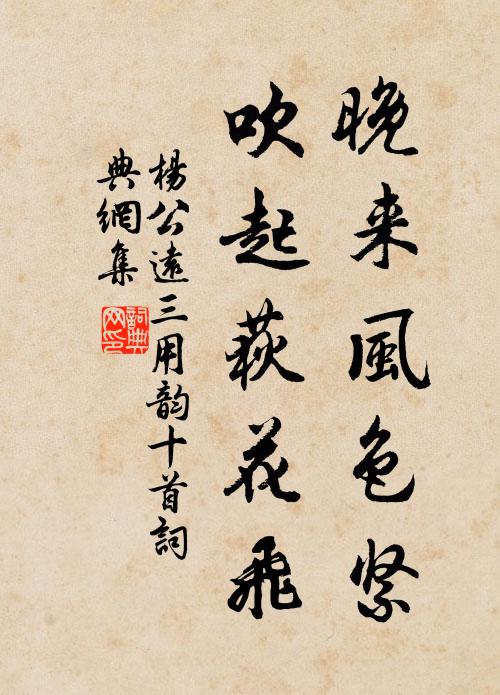 晚来風色緊
吹起荻花飛
楊公遠三用韵十首詞
典網集
詞典
网印